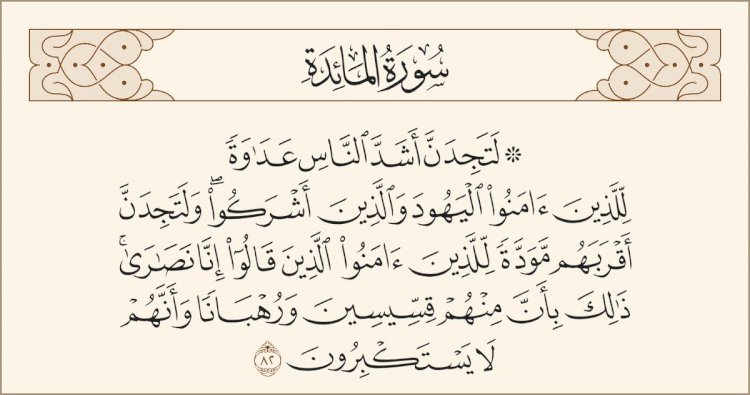 سُورَةُ المَائِدَةِ
۞ لَتَجِدَنَّ أَشَدَّ ٱلنَّاسِ عَدَٰوَةٗ
لِّلَّذِينَ ءَامَنُواْ ٱلۡيَهُودَ وَٱلَّذِينَ أَشۡرَكُواْۖ وَلَتَجِدَنَّ
أَقۡرَبَهُم مَّوَدَّةٗ لِّلَّذِينَ ءَامَنُواْ ٱلَّذِينَ قَالُوٓاْ إِنَّا نَصَٰرَىٰۚ
ذَٰلِكَ بِأَنَّ مِنۡهُمۡ قِسِّيسِينَ وَرُهۡبَانٗا وَأَنَّهُمۡ
لَا يَسۡتَكۡبِرُونَ ٨٢